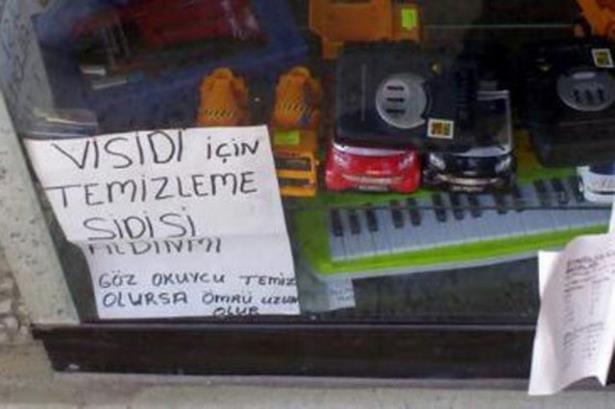 VISIDI İÇİN
TEMİZLEME
SİDİSİ
ALDINMI
GÖZ OKUYCU TEMİZ
OLURSA ÖMRÜ UZUN
OLUR